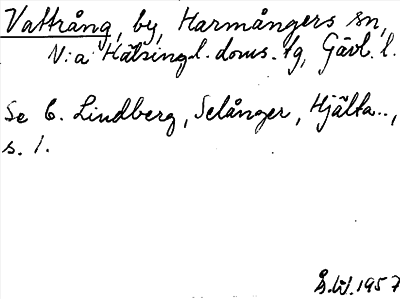 Vattrång, by, Harmångers sn,
N:a Hälsingl. doms. tg, Gävl. l.
Se C. Lindberg, Selånger, Hjälta..,
s. 1.
Å.W. 1957